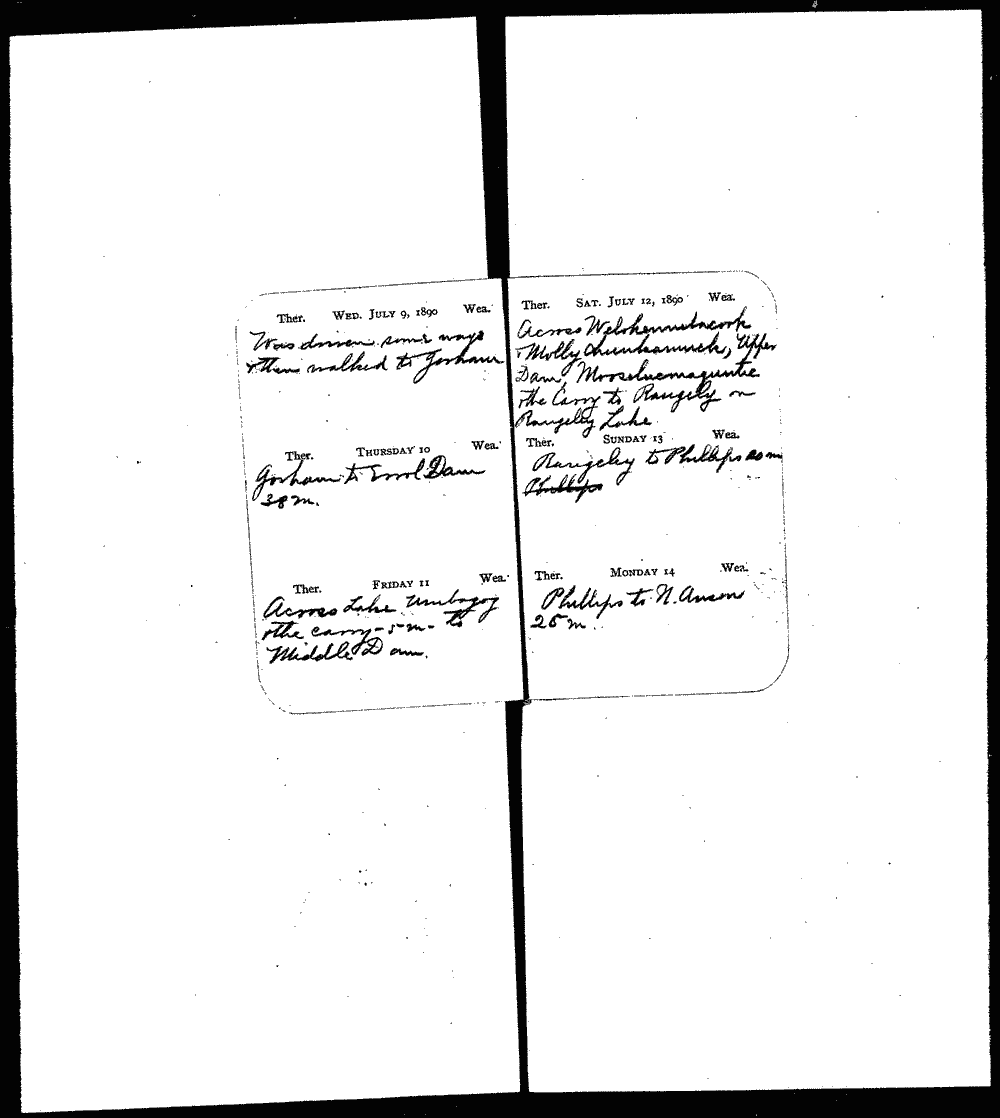 Ther. WED. JULY 9, 1890 Wea.
Was driven some ways
& then walked to Gorham
Ther. THURSDAY 10 Wea.
Gorham to Errol Dam
38 m.
Ther. FRIDAY 11 Wea.
Across Lake Umbagog
& the carry - 5 m - to
Middle Dam.
Ther. SAT. JULY 12, 1890 Wea.
Across Welokennebacook
& Molly chunkamunk, Upper
Dam, Mooselucmaguntic
& the Carry to Rangely on
Rangeley Lake.
Ther. SUNDAY 13 Wea.
Rangeley to Phillips 20 m
Phillips
Ther. MONDAY 14 Wea.
Phillips to N. Anson
25 m.